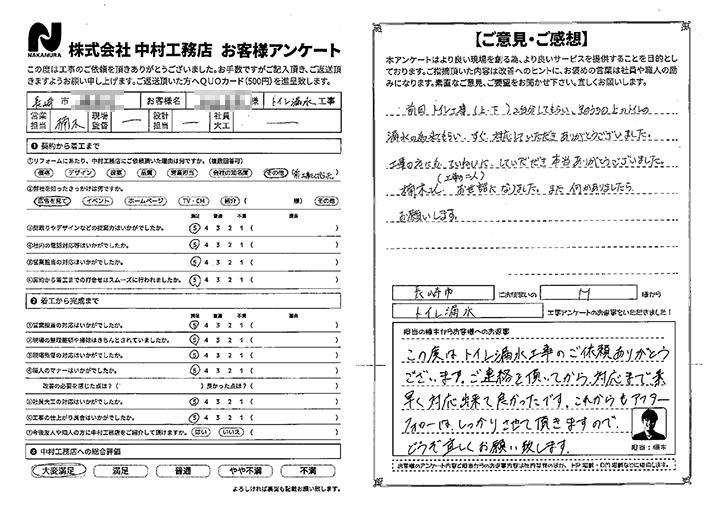 NAKAMURA
株式会社 中村工務店 お客様アンケート
この度は工事のご依頼を頂きありがとうございました。お手数ですがご記入頂き、ご返送頂
きますようお願い申し上げます。ご返送頂いた方へQUOカード(500円)を進呈致します。
長崎 市 お客様名 様 トイレ漏水 工事
営業担当 楠木 現場監督 ー 設計担当 ー 社員大工 ー
❶ 契約から着工まで
①リフォームにあたり、中村工務店にご依頼頂いた理由は何ですか。(複数回答可)
価格 デザイン 提案 品質 営業担当 会社の知名度 その他
②弊社を知ったきっかけは何ですか。
広告を見て イベント ホームページ TV・CM 紹介( 様) その他
満足 普通 不満 理由
③間取りやデザインなどの提案力はいかがでしたか。 5 4 3 2 1 ( )
④社内の電話対応等はいかがでしたか。 5 4 3 2 1 ( )
⑤営業担当の対応はいかがでしたか。 5 4 3 2 1 ( )
⑥契約から着工までの打合せはスムーズに行われましたか。 5 4 3 2 1 ( )
❷ 着工から完成まで
満足 普通 不満 理由
①営業担当の対応はいかがでしたか。 5 4 3 2 1 ( )
②現場の整理整頓や掃除はきちんとされていましたか。 5 4 3 2 1 ( )
③現場監督の対応はいかがでしたか。 5 4 3 2 1 ( )
④職人のマナーはいかがでしたか。 5 4 3 2 1 ( )
改善の必要を感じた点は?( ) 良かった点は?( )
⑤社員大工の対応はいかがでしたか。 5 4 3 2 1 ( )
⑥工事の仕上がり具合はいかがでしたか。 5 4 3 2 1 ( )
⑦今後友人や知人の方に中村工務店をご紹介して頂けますか。 はい いいえ ( )
❸ 中村工務店への総合評価
大変満足 満足 普通 やや不満 不満
よろしければ裏面も記載お願い致します。
【ご意見・ご感想】
本アンケートはより良い現場を創る為、より良いサービスを提供することを目的とし
ております。ご指摘頂いた内容は改善へのヒントに、お褒めの言葉は社員や職人の励
みになります。素直なご意見、ご要望をお聞かせ下さい。宜しくお願いします。
前回トイレ工事(上・下)2台分してもらい、
漏水の すぐ対応していただきありがとうございました。
工事の方にも ていねいに していただき本当ありがとうございました。
(工事の二人)
楠木さん お世話になりました。また何かありましたら
お願いします。
長崎市 にお住まいの M 様から
トイレ漏水 工事アンケートのお返事をいただきました!
担当の楠木からお客様へのお返事
この度は、トイレ漏水工事のご依頼ありがとう
ございます。ご連絡を頂いてから、対応まで素
早く対応出来て良かったです。これからもアフター
フォローは、しっかりさせて頂きますので、
どうぞ宜しくお願い致します。
担当:楠木